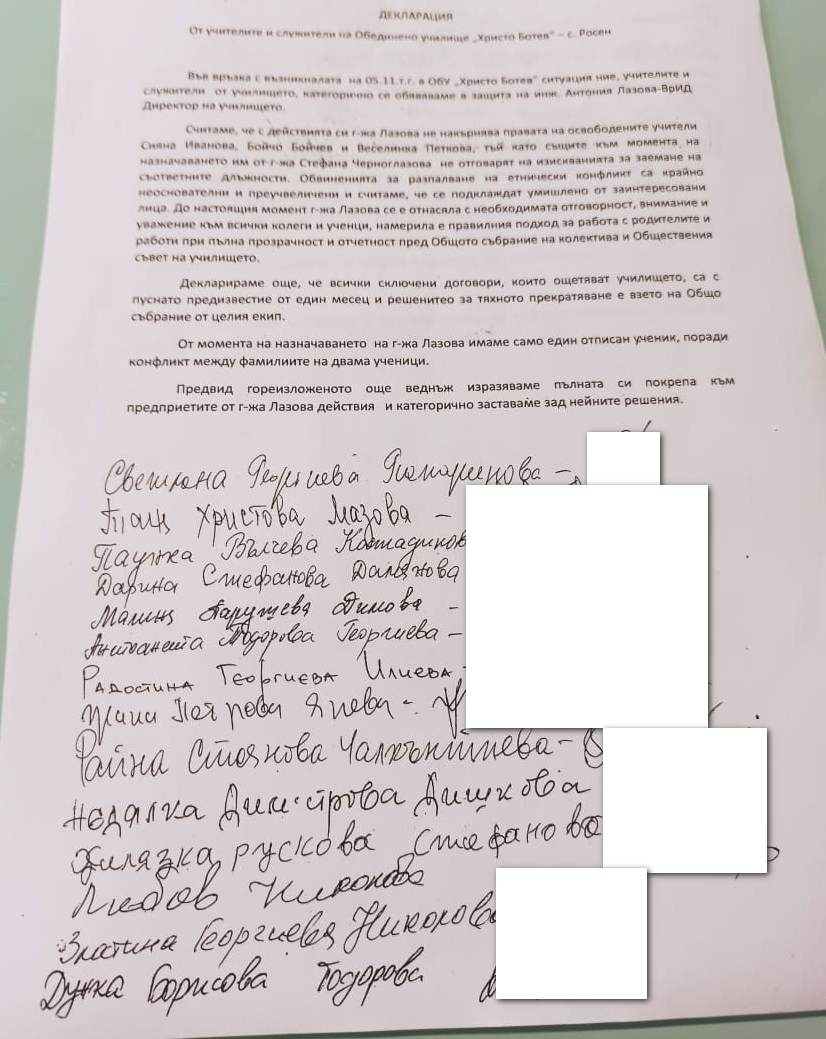 ДЕКЛАРАЦИЯ
От учителите и служители на Обединено училище „Христо Ботев" – с. Росен
Във връзка с възникналата на 05.11.т.г. в ОбУ „Христо Ботев" ситуация ние, учителите и
служители от училището, категорично се обявяваме в защита на инж. Антония Лазова-ВрИД
Директор на училището.
Считаме, че с действията си г-жа Лазова не накърнява правата на освободените учители
Сияна Иванова, Бойчо Бойчев и Веселинка Петкова, тъй като същите към момента на
назначаването им от г-жа Стефана Черноглазова не отговарят на изискванията за заемане на
съответните длъжности. Обвиненията за разпалване на етнически конфликт са крайно
неоснователни и преувеличени и считаме, че се подклаждат умишлено от заинтересовани
лица. До настоящия момент г-жа Лазова се е отнасяла с необходимата отговорност, внимание и
уважение към всички колеги и ученци, намерила е правилния подход за работа с родителите и
работи при пълна прозрачност и отчетност пред Общото събрание на колектива и Обществения
съвет на училището.
Декларираме още, че всички сключени договори, които ощетяват училището, са с
пуснато предизвестие от един месец и решенитео за тяхното прекратяване е взето на Общо
събрание от целия екип.
От момента на назначаването на г-жа Лазова имаме само един отписан ученик, поради
конфликт между фамилиите на двама ученици.
Предвид гореизложеното още веднъж изразяваме пълната си покрепа към
предприетите от г-жа Лазова действия и категорично заставаме зад нейните решения.
Светлана Георгиева –
Таня Христова Мазова –
Паунка Вълчева
Дарина Стефанова Далянова
Малина Димова –
Антоанета Тодорова Георгиева –
Радостина Георгиева Илиева -
Петрова Янева -
Райна Стоянова –
Недялка Димитрова Дишкова
Желязка Рускова Стефанова
Любов Николова
Златина Георгиева Николова
Дунка Борисова Тодорова